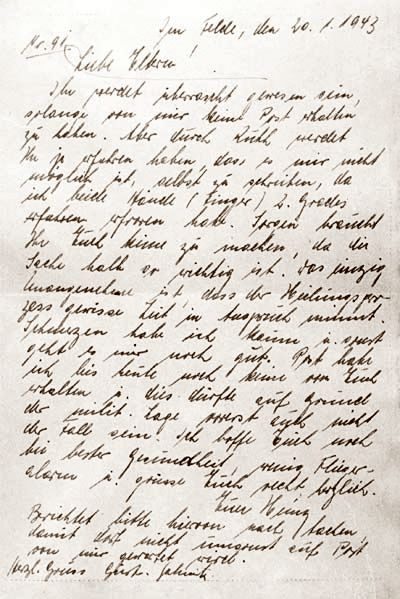 Im Felde, den 20.1.1943
Nr. 91.
Liebe Eltern!
Ihr werdet überrascht gewesen sein,
solange von mir keine Post erhalten
zu haben. Aber durch Ruth werdet
Ihr ja erfahren haben, dass es mir nicht
möglich ist, selbst zu schreiben, da
ich beide Hände (Finger) 2. Grades
erfahren erfroren habe. Sorgen braucht
Ihr Euch keine zu machen, da die
Sache halb so wichtig ist. Das einzig
Unangenehme ist, dass der Heilungspro-
zess gewisse Zeit in Anspruch nimmt
Schmerzen habe ich kaum u. sonst
geht es mir noch gut. Post habe
ich bis heute noch keine von Euch
erhalten u. dies dürfte auf Grund
der milit. Lage vorerst auch nicht
der Fall sein. Ich hoffe Euch noch
bei bester Gesundheit, wenig Flieger-
alarm u. grüsse Euch recht herzlich.
Euer Heinz
Berichtet bitte hiervon nach
damit dort nicht umsonst auf Post
von mir gewartet wird.
Herzl. Gruss